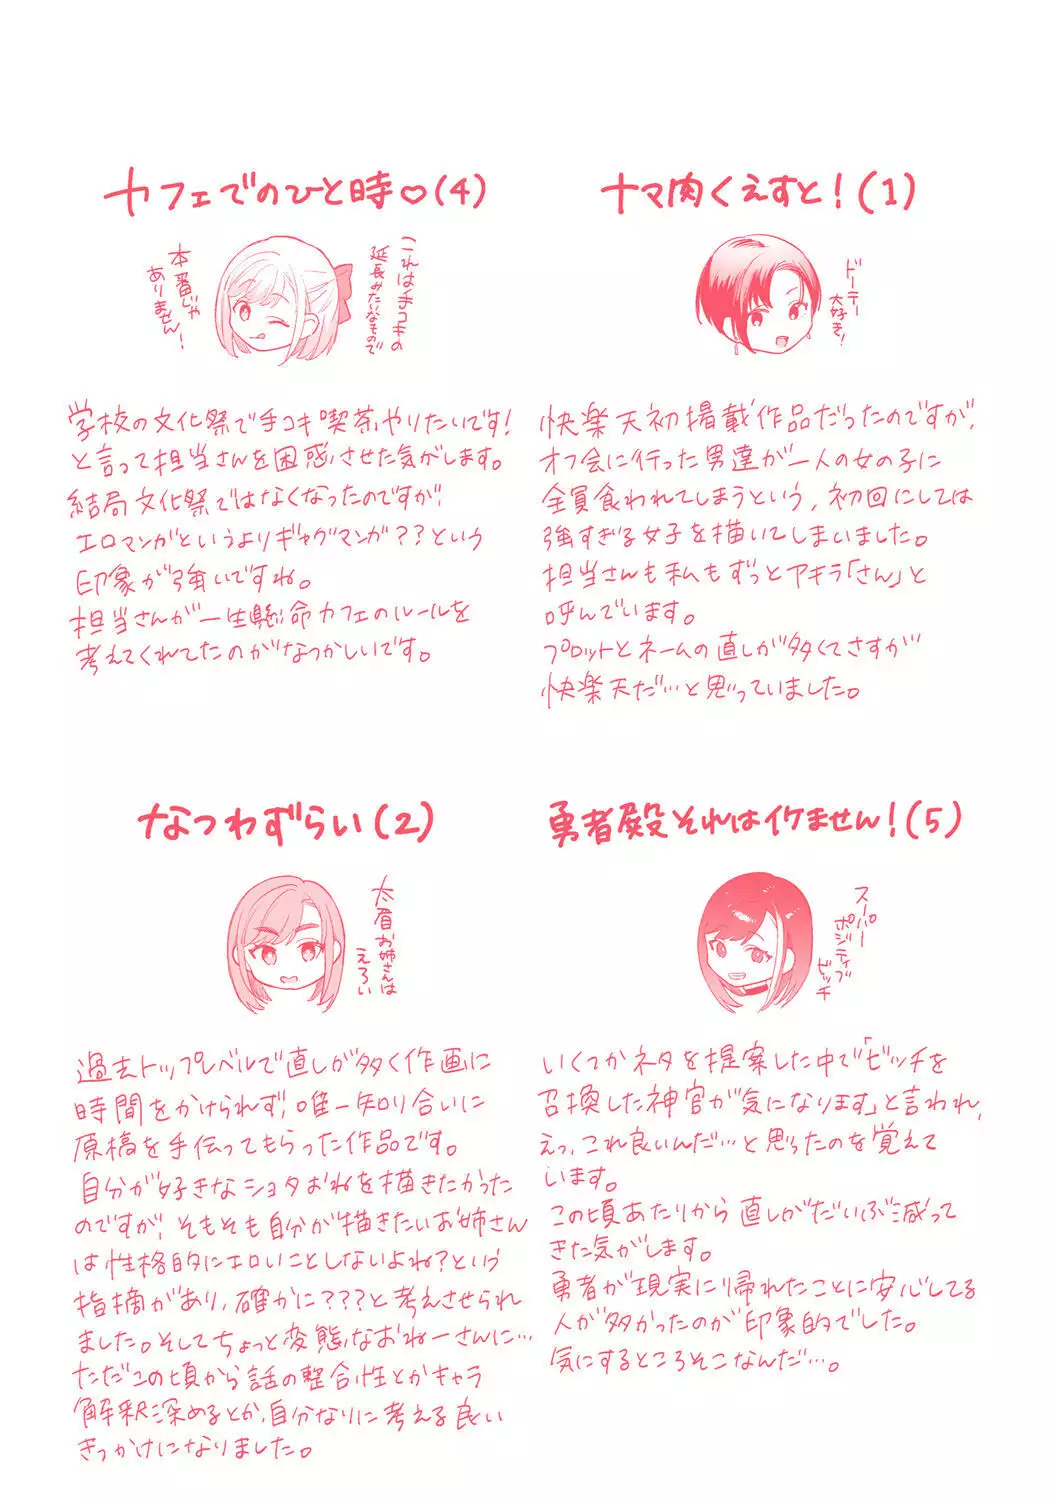 ナマ肉くえすと！(1)
ドーテー
大好き！
快楽天初掲載作品だったのですが、
オフ会に行った男達が一人の女の子に
全員食われてしまうという、初回にしては
強すぎる女子を描いてしまいました。
担当さんも私もずっとアキラ「さん」と
呼んでいます。
プロットとネームの直しが多くてさすが
快楽天だ…と思っていました。
カフェでのひと時♡(4)
これは手コキの
延長みたいなもので
本番じゃ
ありません！
学校の文化祭で手コキ喫茶やりたいです！
と言って担当さんを困惑させた気がします。
結局文化祭ではなくなったのですが、
エロマンガというよりギャグマンガ？？という
印象が強いですね。
担当さんが一生懸命カフェのルールを
考えてくれてたのがなつかしいです。
勇者殿それはイケません！(5)
スーパー
ポジティブ
ビッチ
いくつかネタを提案した中で「ビッチを
召換した神官が気になります」と言われ、
えっ、これ良いんだ…と思ったのを覚えて
います。
この頃あたりから直しがだいぶ減って
きた気がします。
勇者が現実に帰れたことに安心してる
人が多かったのが印象的でした。
気にするところそこなんだ…。
なつわずらい(2)
太眉お姉さんは
えろい
過去トップレベルで直しが多く作画に
時間をかけられず、唯一知り合いに
原稿を手伝ってもらった作品です。
自分が好きなショタおねを描きたかった
のですが、そもそも自分が描きたいお姉さん
は性格的にエロいことしないよね？という
指摘があり、確かに？？？と考えさせられ
ました。そしてちょっと変態なおねーさんに…
ただこの頃から話の整合性とかキャラ
解釈深めるとか、自分なりに考える良い
きっかけになりました。